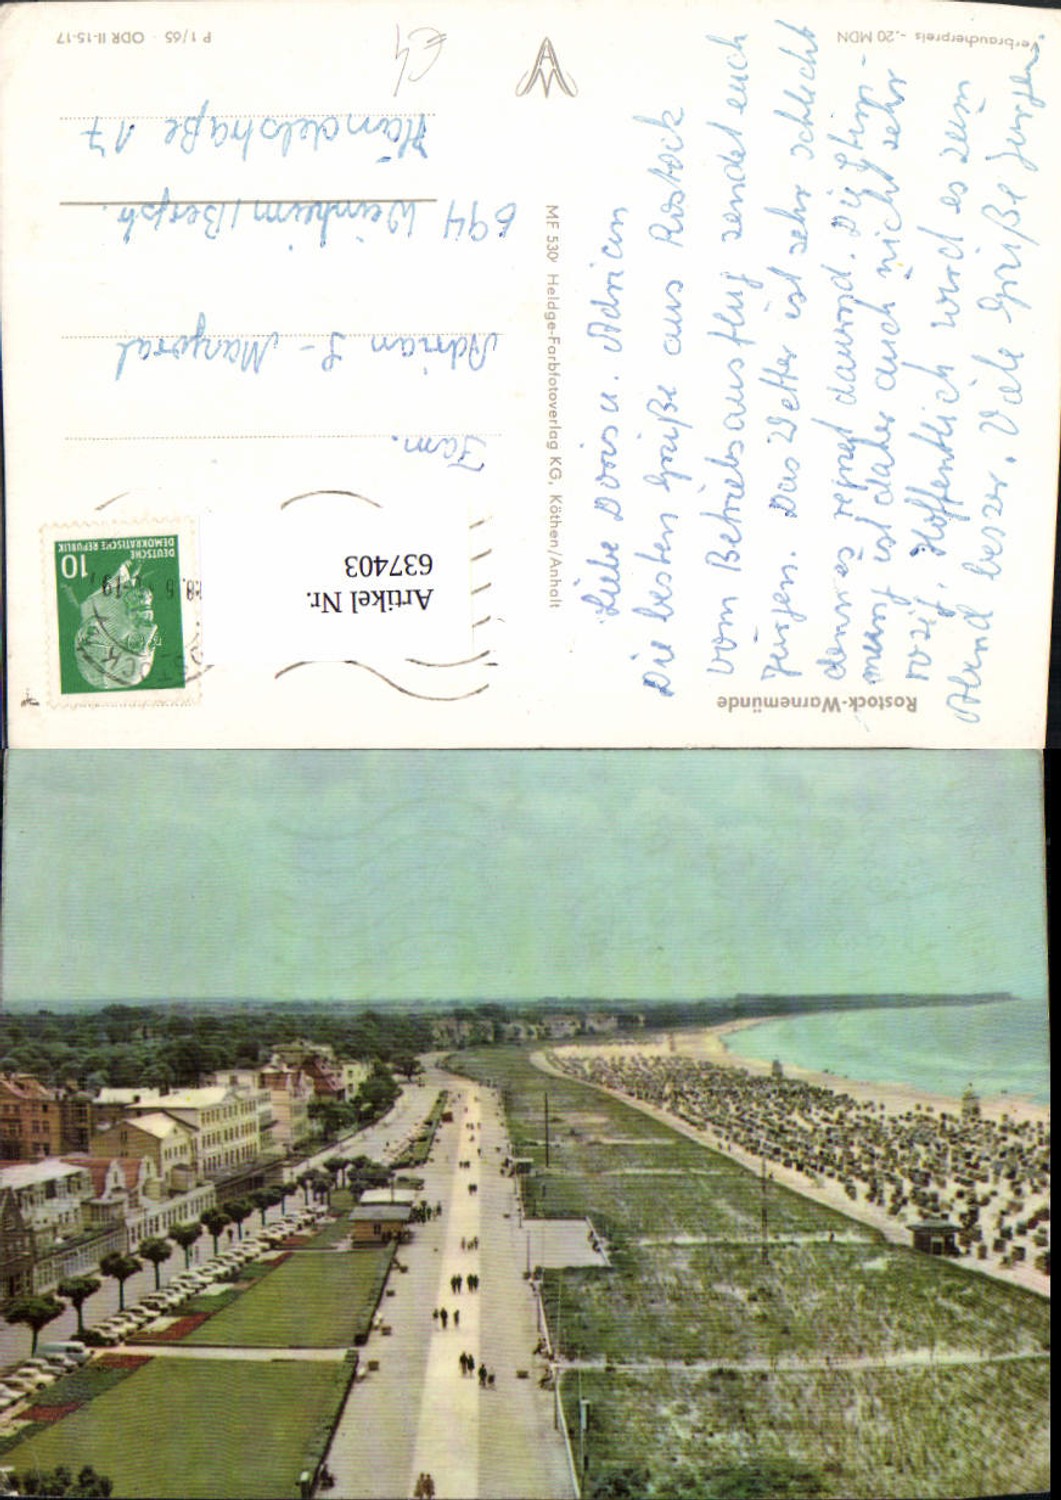 Rostock-Warnemünde
Liebe Doris u. Adrian
Die besten Grüße aus Rostock
vom Betriebsausflug sendet euch
Jürgen. Das Wetter ist sehr schlecht
denn es regnet dauernd. Die Stim-
mung ist daher auch nicht sehr
rosig. Hoffentlich wird es zum
Abend besser. Viele Grüße Jürgen
Verbraucherpreis -,20 MDN
MF 530 Heldge-Farbfotoverlag KG, Köthen/Anhalt
DEUTSCHE
DEMOKRATISCHE REPUBLIK
10
Artikel Nr.
637403
Fam.
Adrian
694 Weinheim/Bergstr.
Händelstraße 17
€4
P 1/65 · ODR II-15-17